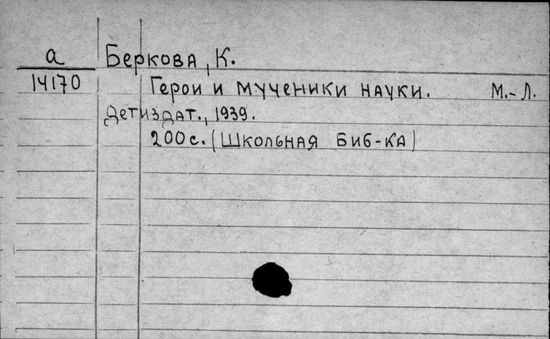 а Беркова, К.
14170 Герои и мученики науки. М.-Л.
Детиздат., 1939.
200 с. (Школьная Биб-ка)